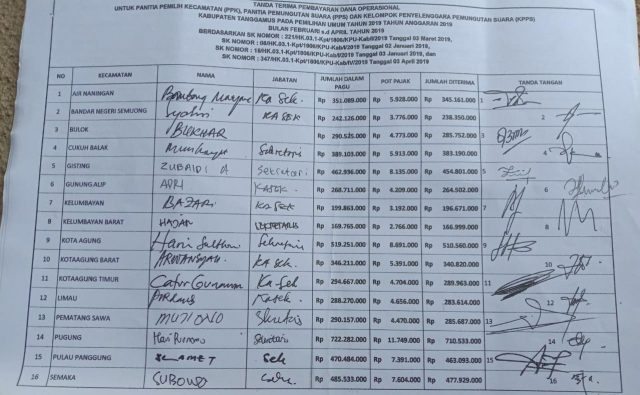 TANDA TERIMA PEMBAYARAN DANA OPERASIONAL
UNTUK PANITIA PEMILIH KECAMATAN (PPK), PANITIA PEMUNGUTAN SUARA (PPS) DAN KELOMPOK PENYELENGGARA PEMUNGUTAN SUARA (KPPS)
KABUPATEN TANGGAMUS PADA PEMILIHAN UMUM TAHUN 2019 TAHUN ANGGARAN 2019
BULAN FEBRUARI s.d APRIL TAHUN 2019
BERDASARKAN SK NOMOR : 221/HK.03.1-Kpt/1806/KPU-Kab/II/2019 Tanggal 03 Maret 2019,
SK NOMOR : 08/HK.03.1-Kpt/1806/KPU-Kab/I/2019 Tanggal 02 Januari 2019,
SK NOMOR : 16/HK.03.1-Kpt/1806/KPU-Kab/I/2019 Tanggal 03 Januari 2019, dan
SK NOMOR : 347/HK.03.1-Kpt/1806/KPU-Kab/IV/2019 Tanggal 03 April 2019
NO KECAMATAN NAMA JABATAN JUMLAH DALAM PAGU POT PAJAK JUMLAH DITERIMA TANDA TANGAN
1 AIR NANINGAN Ka Sek Rp 351.089.000 Rp 5.928.000 Rp 345.161.000 1
2 BANDAR NEGERI SEMUONG KASEK Rp 242.126.000 Rp 3.776.000 Rp 238.350.000 2
3 BULOK BUKHARI Rp 290.525.000 Rp 4.773.000 Rp 285.752.000 3
4 CUKUH BALAK Sekretaris Rp 389.103.000 Rp 5.913.000 Rp 383.190.000 4
5 GISTING ZUBAIDI A Sekretari Rp 462.936.000 Rp 8.135.000 Rp 454.801.000 5
6 GUNUNG ALIP APRI KASEK Rp 268.711.000 Rp 4.209.000 Rp 264.502.000 6
7 KELUMBAYAN BAZARI KASEK Rp 199.863.000 Rp 3.192.000 Rp 196.671.000 7
8 KELUMBAYAN BARAT HASAN Rp 169.765.000 Rp 2.766.000 Rp 166.999.000 8
9 KOTA AGUNG Rp 519.251.000 Rp 8.691.000 Rp 510.560.000 9
10 KOTAAGUNG BARAT Ka Sek Rp 346.211.000 Rp 5.391.000 Rp 340.820.000 10
11 KOTAAGUNG TIMUR Catur Gunawan Ka-Sek Rp 294.667.000 Rp 4.704.000 Rp 289.963.000 11
12 LIMAU Kasek Rp 288.270.000 Rp 4.656.000 Rp 283.614.000 12
13 PEMATANG SAWA MUJIONO Rp 290.157.000 Rp 4.470.000 Rp 285.687.000 13
14 PUGUNG Rp 722.282.000 Rp 11.749.000 Rp 710.533.000 14
15 PULAU PANGGUNG SLAMET Sek Rp 470.484.000 Rp 7.391.000 Rp 463.093.000 15
16 SEMAKA SUBOWO Rp 485.533.000 Rp 7.604.000 Rp 477.929.000 16